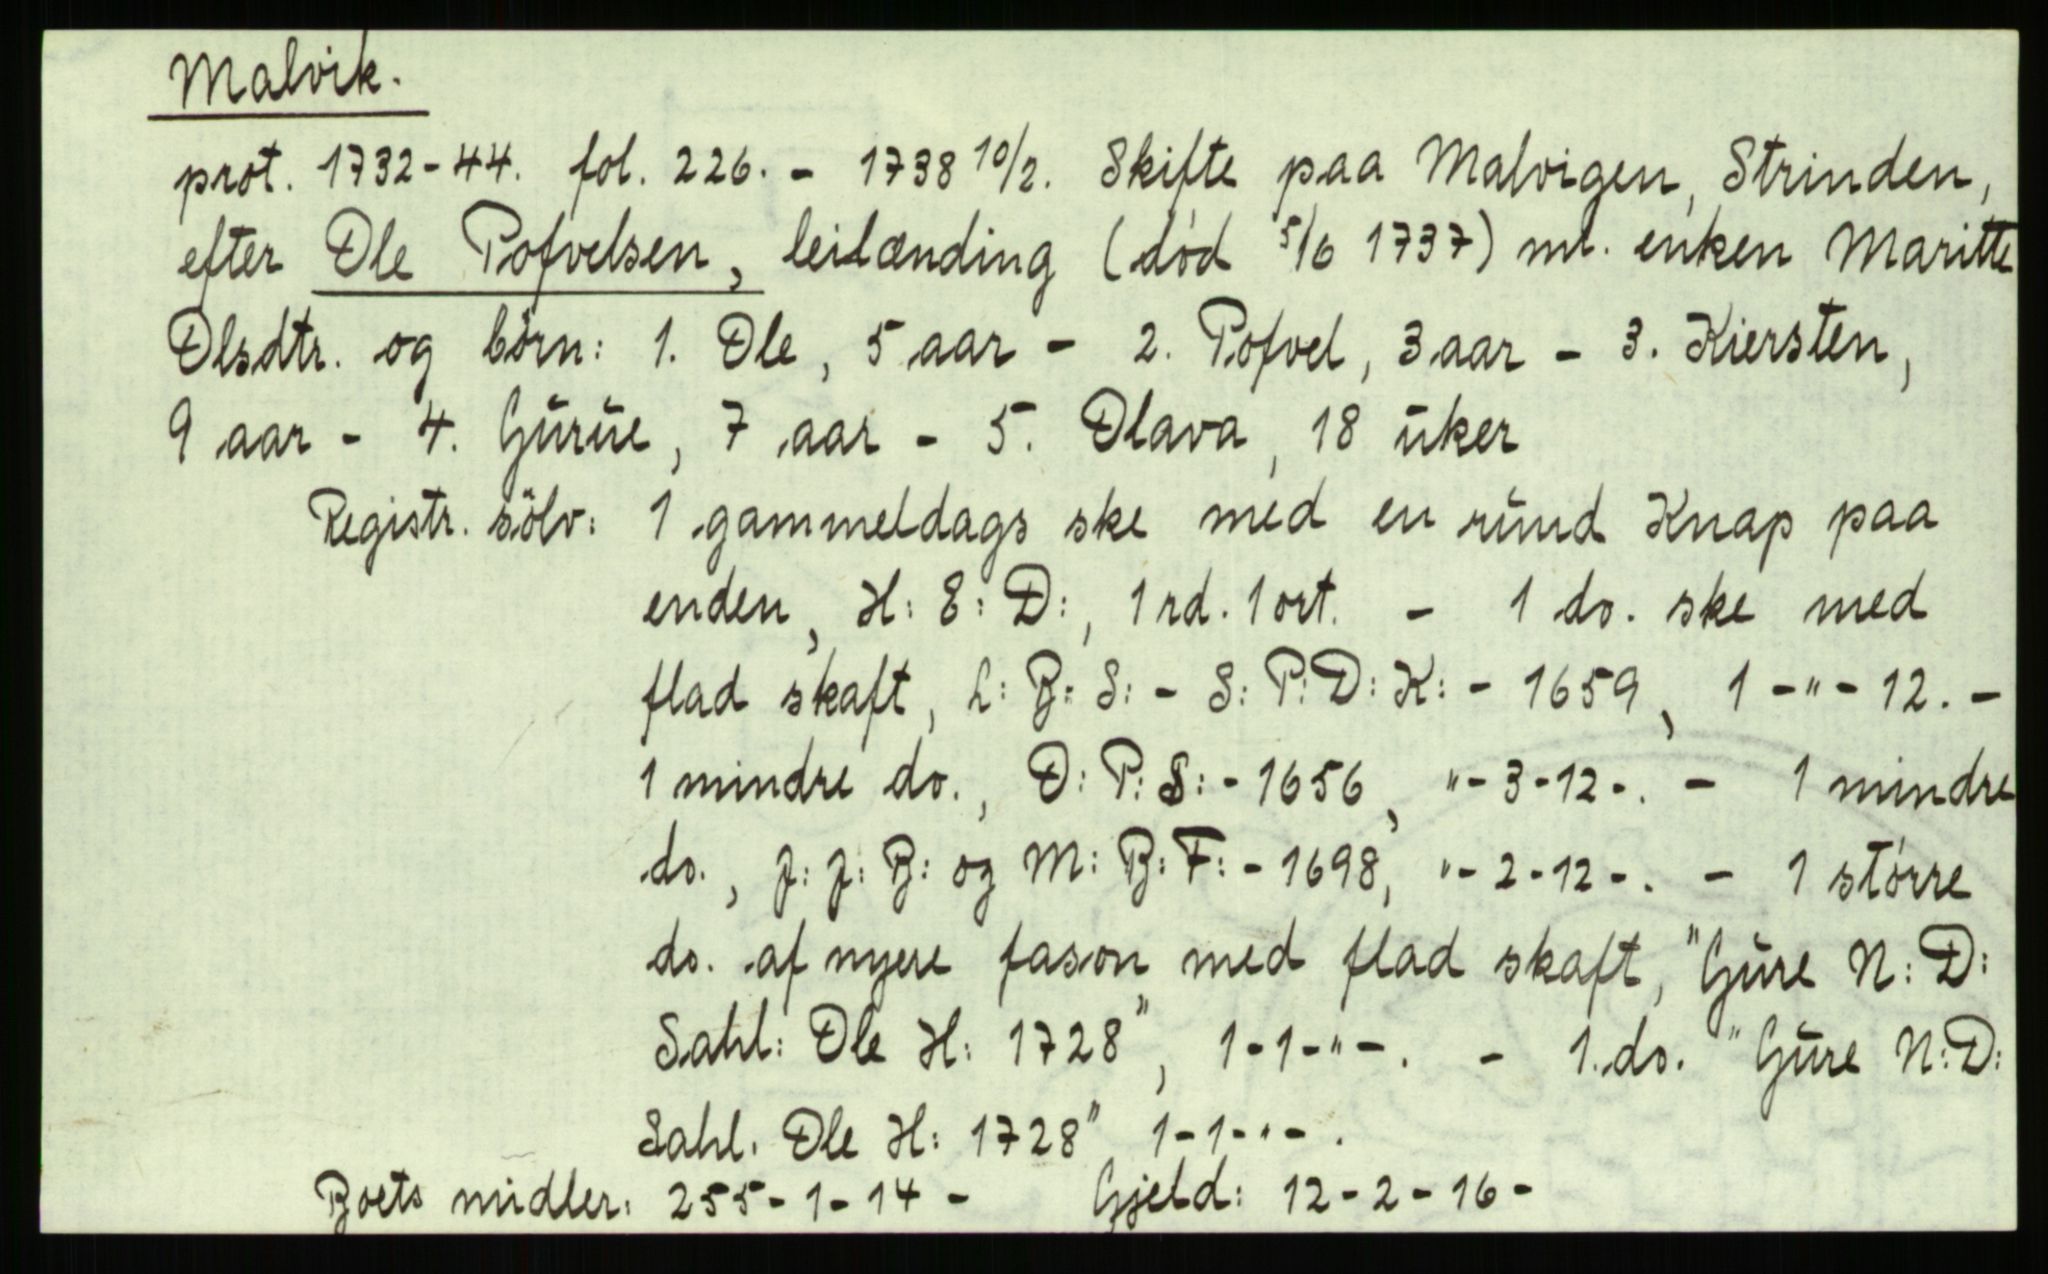 Malvik.
prot. 1732-44. fol. 226. - 1738 10/2. Skifte paa Malvigen, Strinden,
efter Ole Pofvelsen, leilænding (död 5/6 1737) ml. enken Maritte
Olsdtr. og börn: 1. Ole, 5 aar - 2. Pofvel, 3 aar - 3. Kiersten,
9 aar - 4. Gurue, 7 aar - 5. Olava, 18 uker
Registr. sölv: 1 gammeldags ske med en rund Knap paa
enden, H: E: D:, 1 rd. 1 ort. - 1 do. ske med
flad skaft, L: B: S: - S: P: D: K: - 1659, 1 - " - 12. -
1 mindre do., O: P: S: - 1656, " - 3 - 12 - . - 1 mindre
do., J: J: B: og M: B: F: - 1698, " - 2 - 12 - . - 1 större
do. af nyere fason med flad skaft, "Gure N: D:
Sahl: Ole H: 1728", 1 - 1 - " - . - 1. do. "Gure N: D:
Sahl. Ole H: 1728" 1 - 1 - " - .
Boets midler: 255 - 1 - 14 - Gjeld: 12 - 2 - 16 -